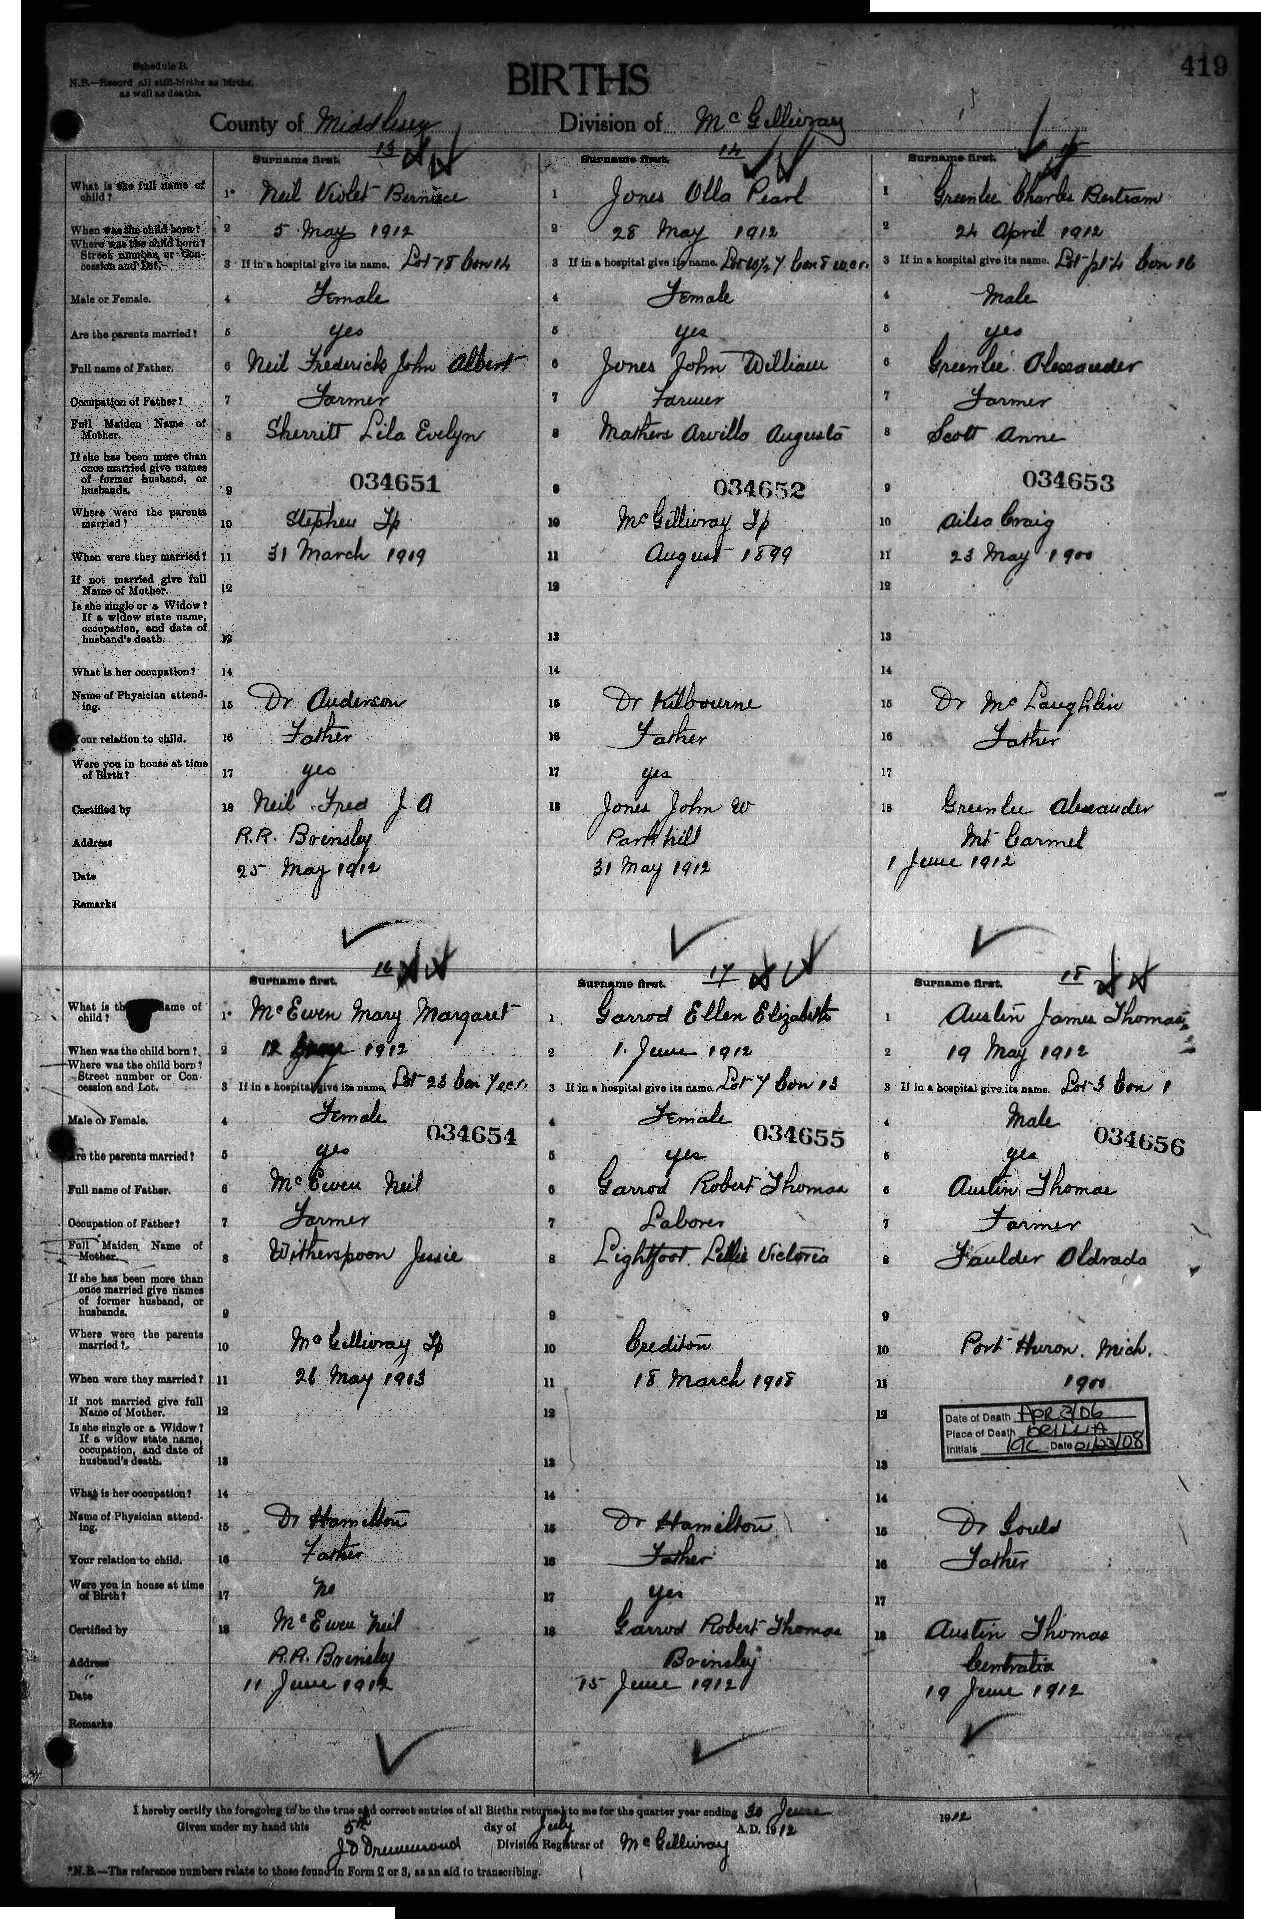 419
Schedule B.
N.B.—Record all still-births as births,
as well as deaths.
BIRTHS
County of Middlesex Division of McGillivray
13 14 15
Surname first. Surname first. Surname first.
What is the full name of child? 1* Neil Violet Bernice 1 Jones Olla Pearl 1 Greenlee Charles Bertram
When was the child born? 2 5 May 1912 2 28 May 1912 2 24 April 1912
Where was the child born? Street number, or Concession and Lot. 3 If in a hospital give its name. Lot 18 Con 14 3 If in a hospital give its name. Con 8 3 If in a hospital give its name. Lot pt 4 Con 16
Male or Female. 4 Female 4 Female 4 Male
Are the parents married? 5 yes 5 yes 5 yes
Full name of Father. 6 Neil Frederick John Albert 6 Jones John William 6 Greenlee Alexander
Occupation of Father? 7 Farmer 7 Farmer 7 Farmer
Full Maiden Name of Mother. 8 Sherritt Lila Evelyn 8 Mathers Arvilla Augusta 8 Scott Anne
If she has been more than once married give names of former husband, or husbands. 9 034651 9 034652 9 034653
Where were the parents married? 10 Stephen Tp 10 McGillivray Tp 10 Ailsa Craig
When were they married? 11 31 March 1909 11 August 1899 11 23 May 1900
If not married give full Name of Mother. 12 12 12
Is she single or a Widow? If a widow state name, occupation, and date of husband's death. 13 13 13
What is her occupation? 14 14 14
Name of Physician attending. 15 Dr Anderson 15 Dr Kilbourne 15 Dr McLaughlin
Your relation to child. 16 Father 16 Father 16 Father
Were you in house at time of Birth? 17 yes 17 yes 17
Certified by 18 Neil Fred J A 18 Jones John W 18 Greenlee Alexander
Address R.R. Brinsley Parkhill Mt Carmel
Date 25 May 1912 31 May 1912 1 June 1912
Remarks
16 17 18
Surname first. Surname first. Surname first.
What is the name of child? 1* McEwen Mary Margaret 1 Garrod Ellen Elizabeth 1 Austin James Thomas
When was the child born? 2 12 1912 2 1 June 1912 2 19 May 1912
Where was the child born? Street number or Concession and Lot. 3 If in a hospital give its name. Lot 23 Con 7 ecr. 3 If in a hospital give its name. Lot 7 Con 13 3 If in a hospital give its name. Lot 3 Con 1
Male or Female. 4 Female 034654 4 Female 034655 4 Male 034656
Are the parents married? 5 yes 5 yes 5 yes
Full name of Father. 6 McEwen Neil 6 Garrod Robert Thomas 6 Austin Thomas
Occupation of Father? 7 Farmer 7 Laborer 7 Farmer
Full Maiden Name of Mother. 8 Witherspoon Jessie 8 Lightfoot Lillie Victoria 8 Faulder Oldrada
If she has been more than once married give names of former husband, or husbands. 9 9 9
Where were the parents married? 10 McGillivray Tp 10 Crediton 10 Port Huron, Mich.
When were they married? 11 26 May 1903 11 18 March 1908 11 1900
If not married give full Name of Mother. 12 12 12
Is she single or a Widow? If a widow state name, occupation, and date of husband's death. 13 13 13
Date of Death APR 3/06
Place of Death ORILLIA
Initials Date 01/23/08
What is her occupation? 14 14 14
Name of Physician attending. 15 Dr Hamilton 15 Dr Hamilton 15 Dr Gould
Your relation to child. 16 Father 16 Father 16 Father
Were you in house at time of Birth? 17 No 17 yes 17
Certified by 18 McEwen Neil 18 Garrod Robert Thomas 18 Austin Thomas
Address R.R. Brinsley Brinsley Centralia
Date 11 June 1912 15 June 1912 19 June 1912
Remarks
I hereby certify the foregoing to be the true and correct entries of all Births returned to me for the quarter year ending 30 June 1912
Given under my hand this 5th day of July A.D. 1912
J D Drummond Division Registrar of McGillivray
*N.B.—The reference numbers relate to those found in Form 2 or 3, as an aid to transcribing.